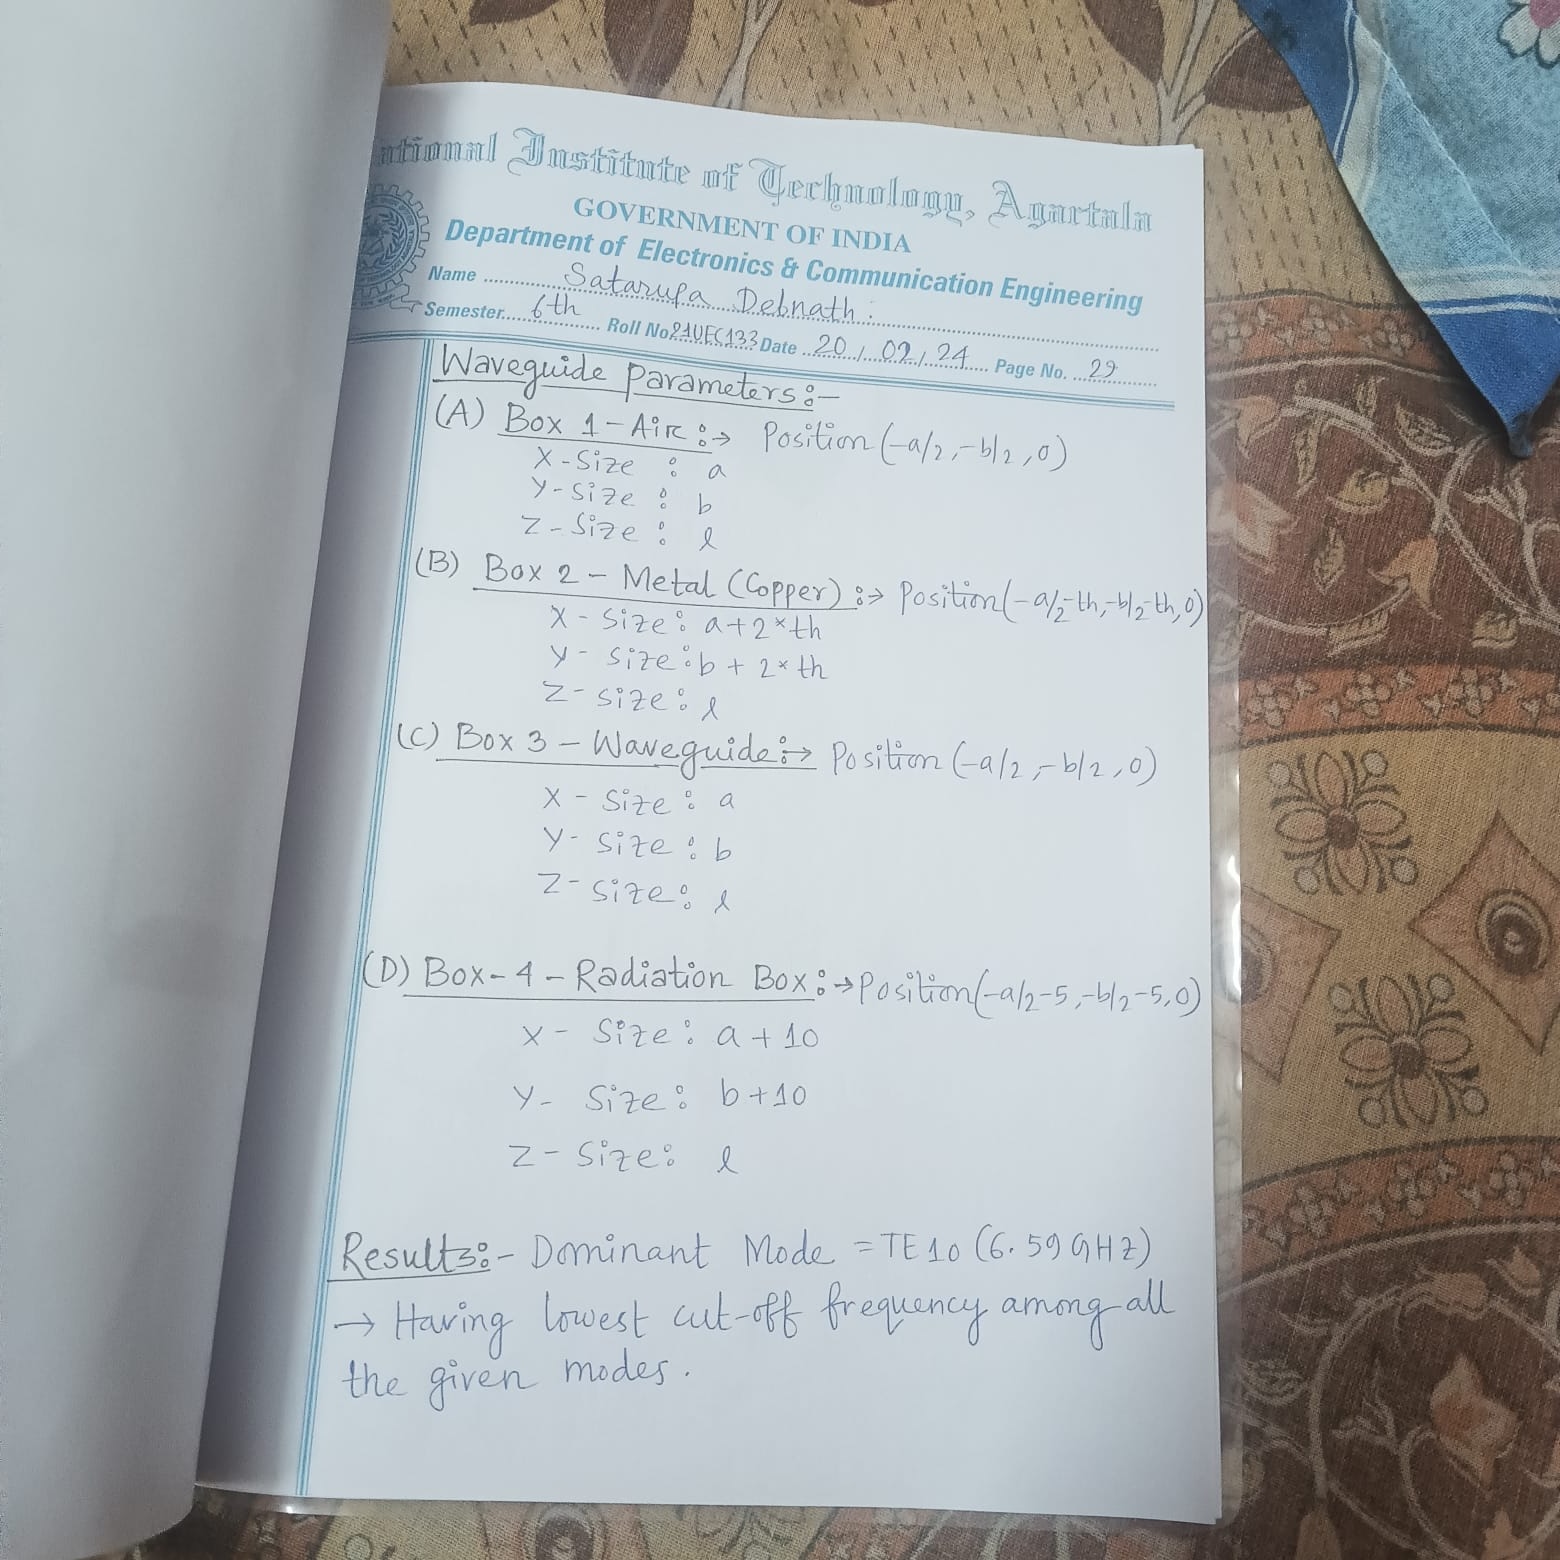 ational Institute of Technology, Agartala
GOVERNMENT OF INDIA
Department of Electronics & Communication Engineering
Name Satarupa Debnath.
Semester 6th Roll No 21UEC133 Date 20/02/24 Page No. 29
Waveguide Parameters:-
(A) Box 1 - Air :→ Position (-a/2, -b/2, 0)
X - Size : a
Y - Size : b
Z - Size : l
(B) Box 2 - Metal (Copper) :→ Position (-a/2-th, -b/2-th, 0)
X - Size : a+2*th
Y - Size : b + 2*th
Z - Size : l
(C) Box 3 - Waveguide :→ Position (-a/2, -b/2, 0)
X - Size : a
Y - Size : b
Z - Size : l
(D) Box-4 - Radiation Box :→ Position (-a/2-5, -b/2-5, 0)
X - Size : a + 10
Y - Size : b+10
Z - Size : l
Results:- Dominant Mode = TE10 (6.59 GHz)
→ Having lowest cut-off frequency among all
the given modes.